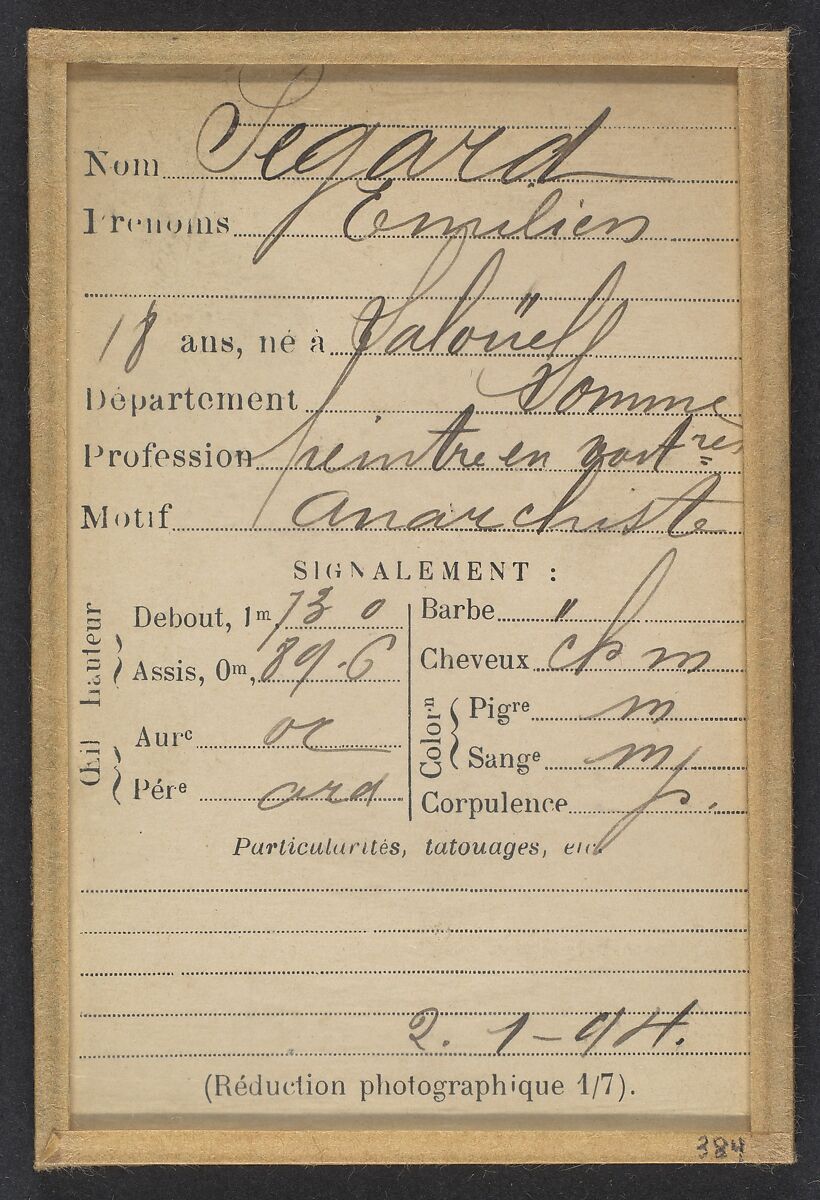 Nom Segard
Prénoms Emilien
18 ans, né à Saloüel
Département Somme
Profession peintre en voit^res
Motif anarchiste
SIGNALEMENT :
Œil hauteur
Debout, 1m, 73 0
Assis, 0m, 89.6
Aur^e or
Pér^e ord
Barbe "
Cheveux ch m
Color^n
Pig^re m
Sang^e m
Corpulence p.
Particularités, tatouages, etc.
2. 1 - 94.
(Réduction photographique 1/7).
384